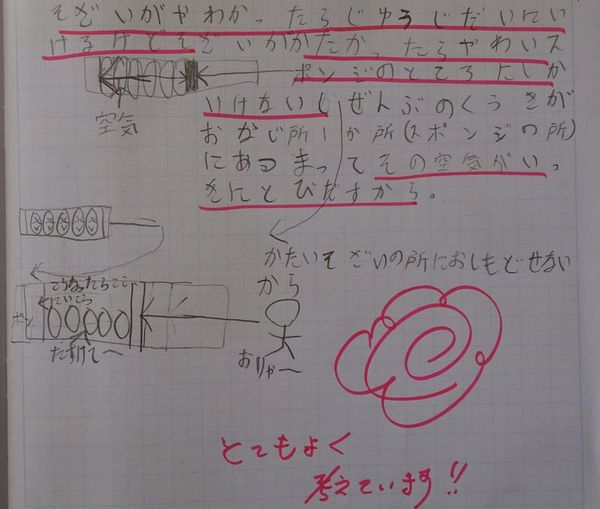 そざいがやわかったらじゆうじざいにい
けるけどそざいがかたかったらやわいス
ポンジのところにしか
いけないしぜんぶのくうきが
おなじ所1か所(スポンジの所)
にあつまってその空気がい
きにとびだすから。
空気
かたいそざいの所におしもどせない
から
こうなったらここ
ていこう
たすけて〜
おりゃ〜
とてもよく
考えています!!